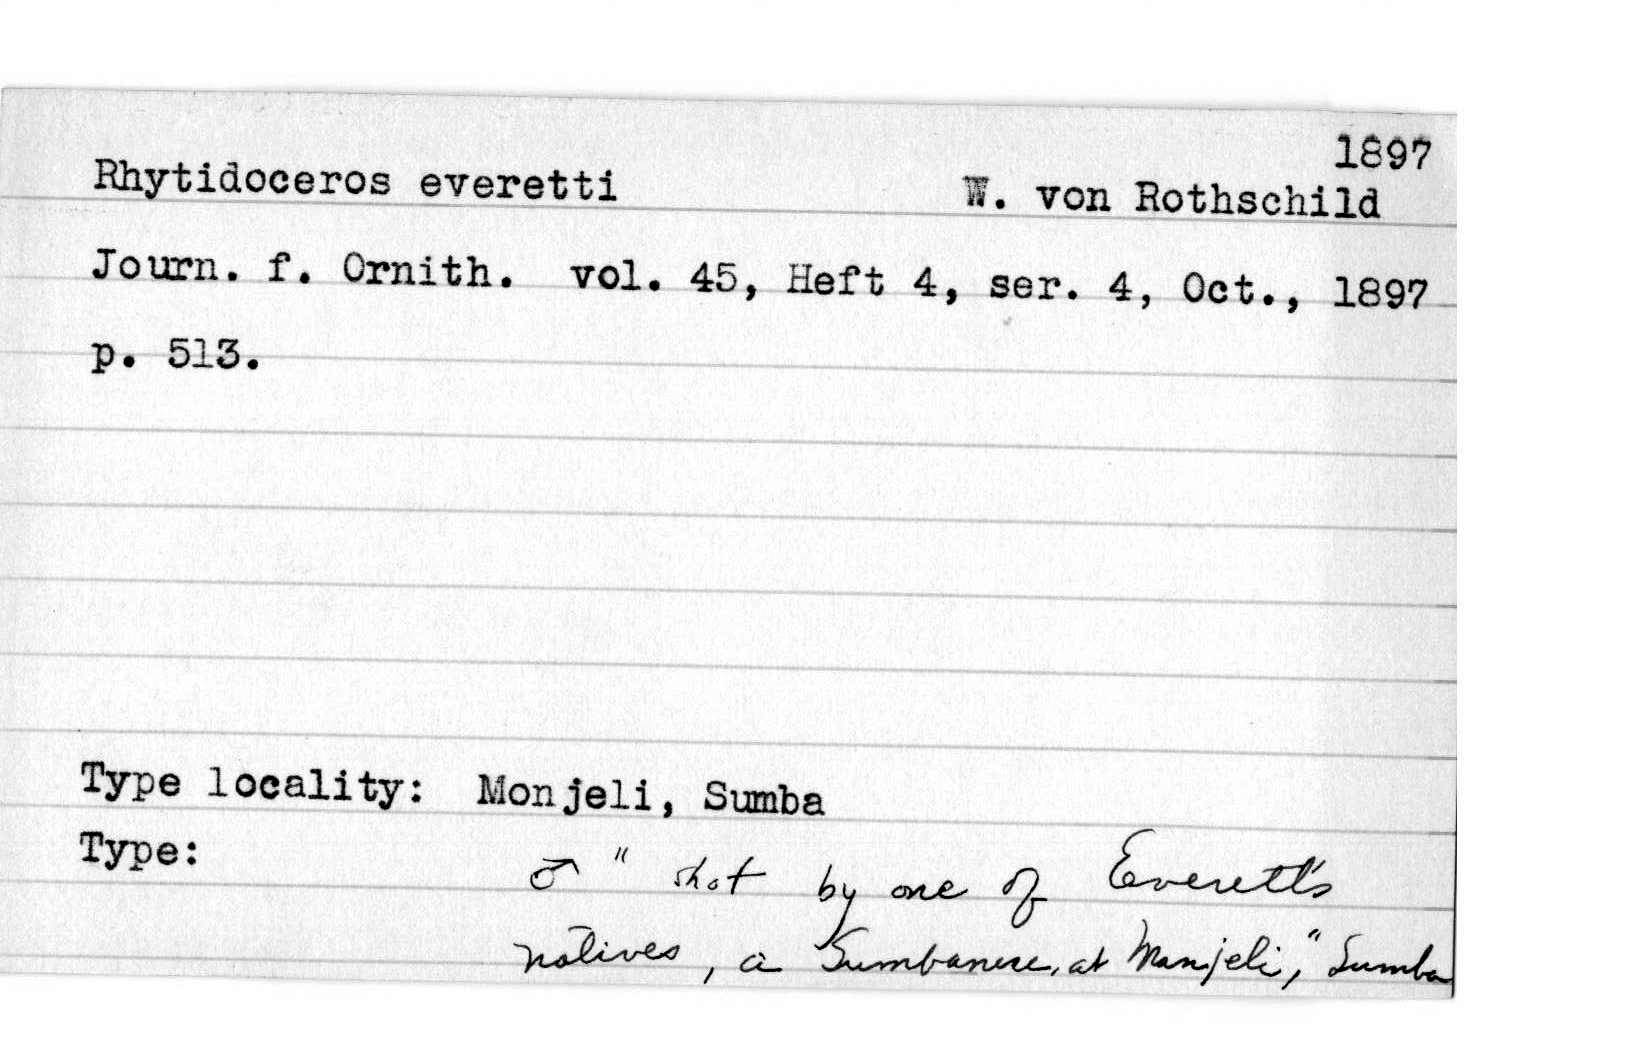 1897
Rhytidoceros everetti W. von Rothschild
Journ. f. Ornith. vol. 45, Heft 4, ser. 4, Oct., 1897
p. 513.
Type locality: Monjeli, Sumba
Type: ♂ " shot by one of Everett's
natives, a Sumbanese, at Manjeli," Sumba